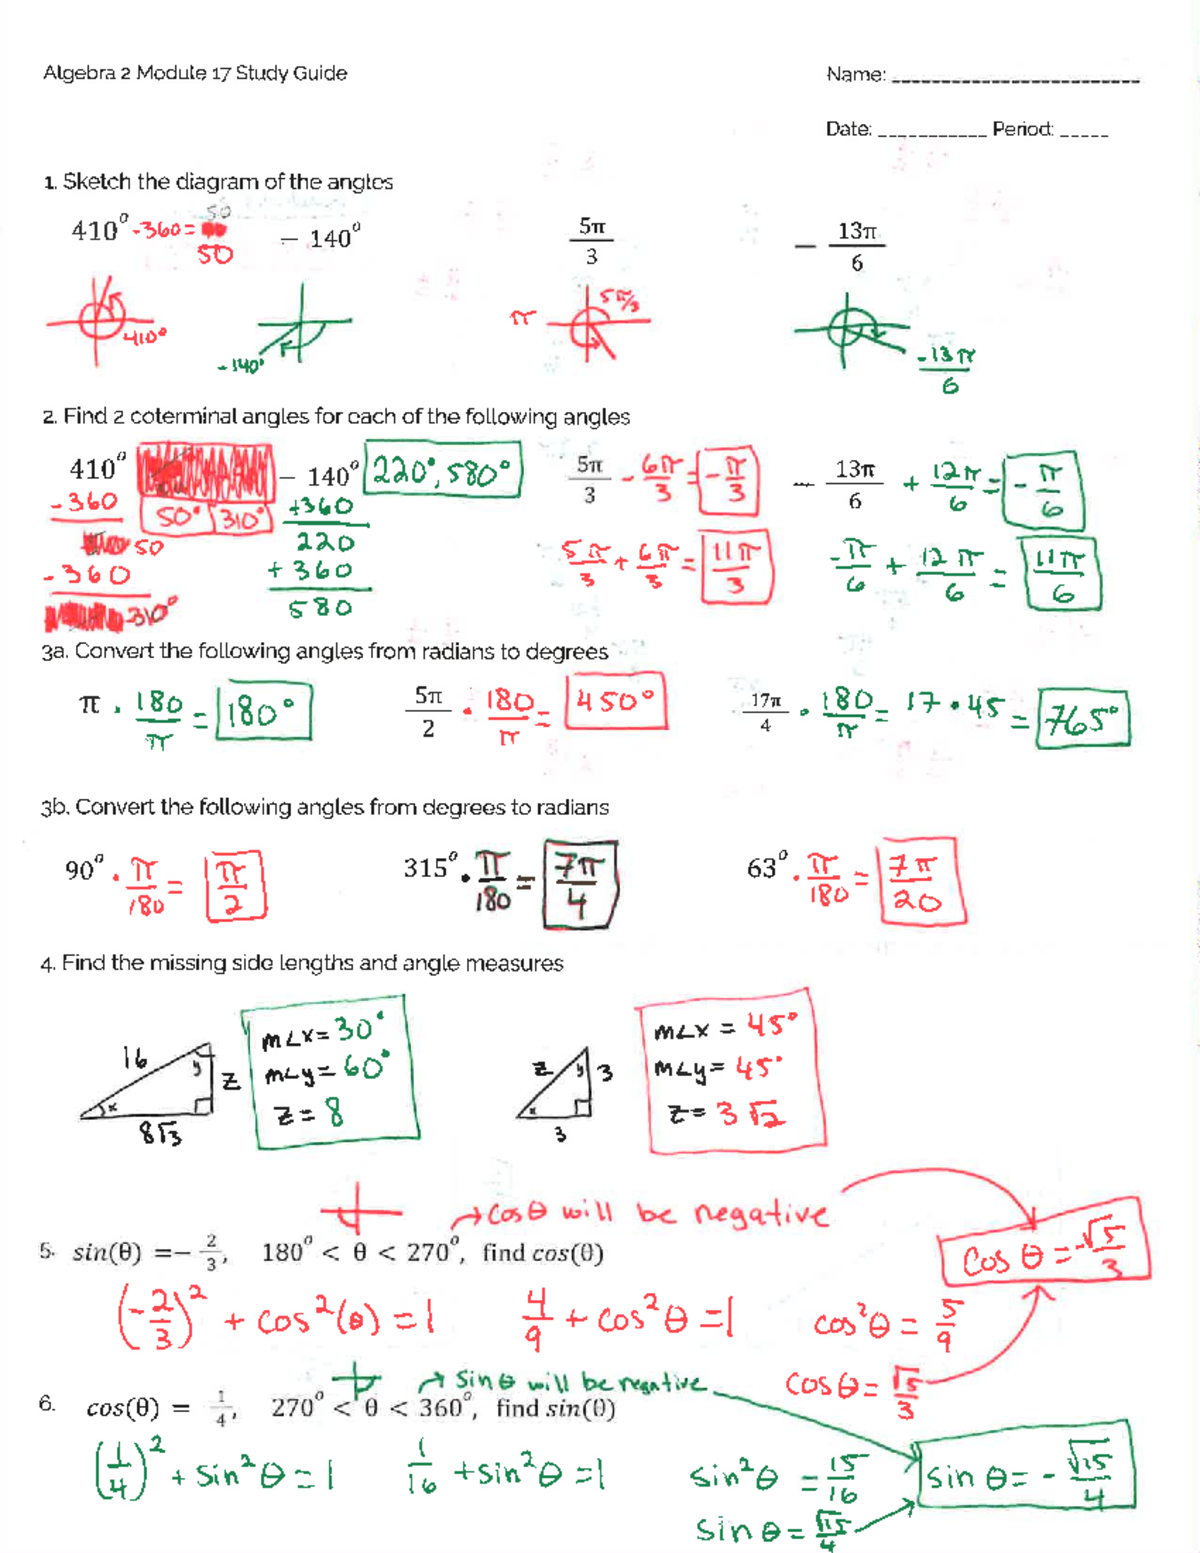 Algebra 2 Module 17 Study Guide Name: ____________
Date: ____________ Period: _____
1. Sketch the diagram of the angles
410° -360 = 50 − 140° 5π/3 − 13π/6
50
410° -140° π 5π/3 -13π/6
2. Find 2 coterminal angles for each of the following angles
410° − 140° 220°, 580° 5π/3 - 6π/3 = -π/3 − 13π/6 + 12π/6 = -π/6
-360 50° 310° +360
50 220 5π/3 + 6π/3 = 11π/3 -π/6 + 12π/6 = 11π/6
-360 +360
310° 580
3a. Convert the following angles from radians to degrees
π · 180/π = 180° 5π/2 · 180/π = 450° 17π/4 · 180/π = 17 · 45 = 765°
3b. Convert the following angles from degrees to radians
90° · π/180 = π/2 315° · π/180 = 7π/4 63° · π/180 = 7π/20
4. Find the missing side lengths and angle measures
16 y z x 8√3
m∠x = 30°
m∠y = 60°
z = 8
z y 3 x 3
m∠x = 45°
m∠y = 45°
z = 3√2
→ cos θ will be negative
5. sin(θ) = − 2/3, 180° < θ < 270°, find cos(θ) cos θ = -√5/3
(-2/3)² + cos²(θ) = 1 4/9 + cos²θ = 1 cos²θ = 5/9
cos θ = √5/3
→ sin θ will be negative
6. cos(θ) = 1/4, 270° < θ < 360°, find sin(θ)
(1/4)² + sin²θ = 1 1/16 + sin²θ = 1 sin²θ = 15/16 sin θ = - √15/4
sin θ = √15/4